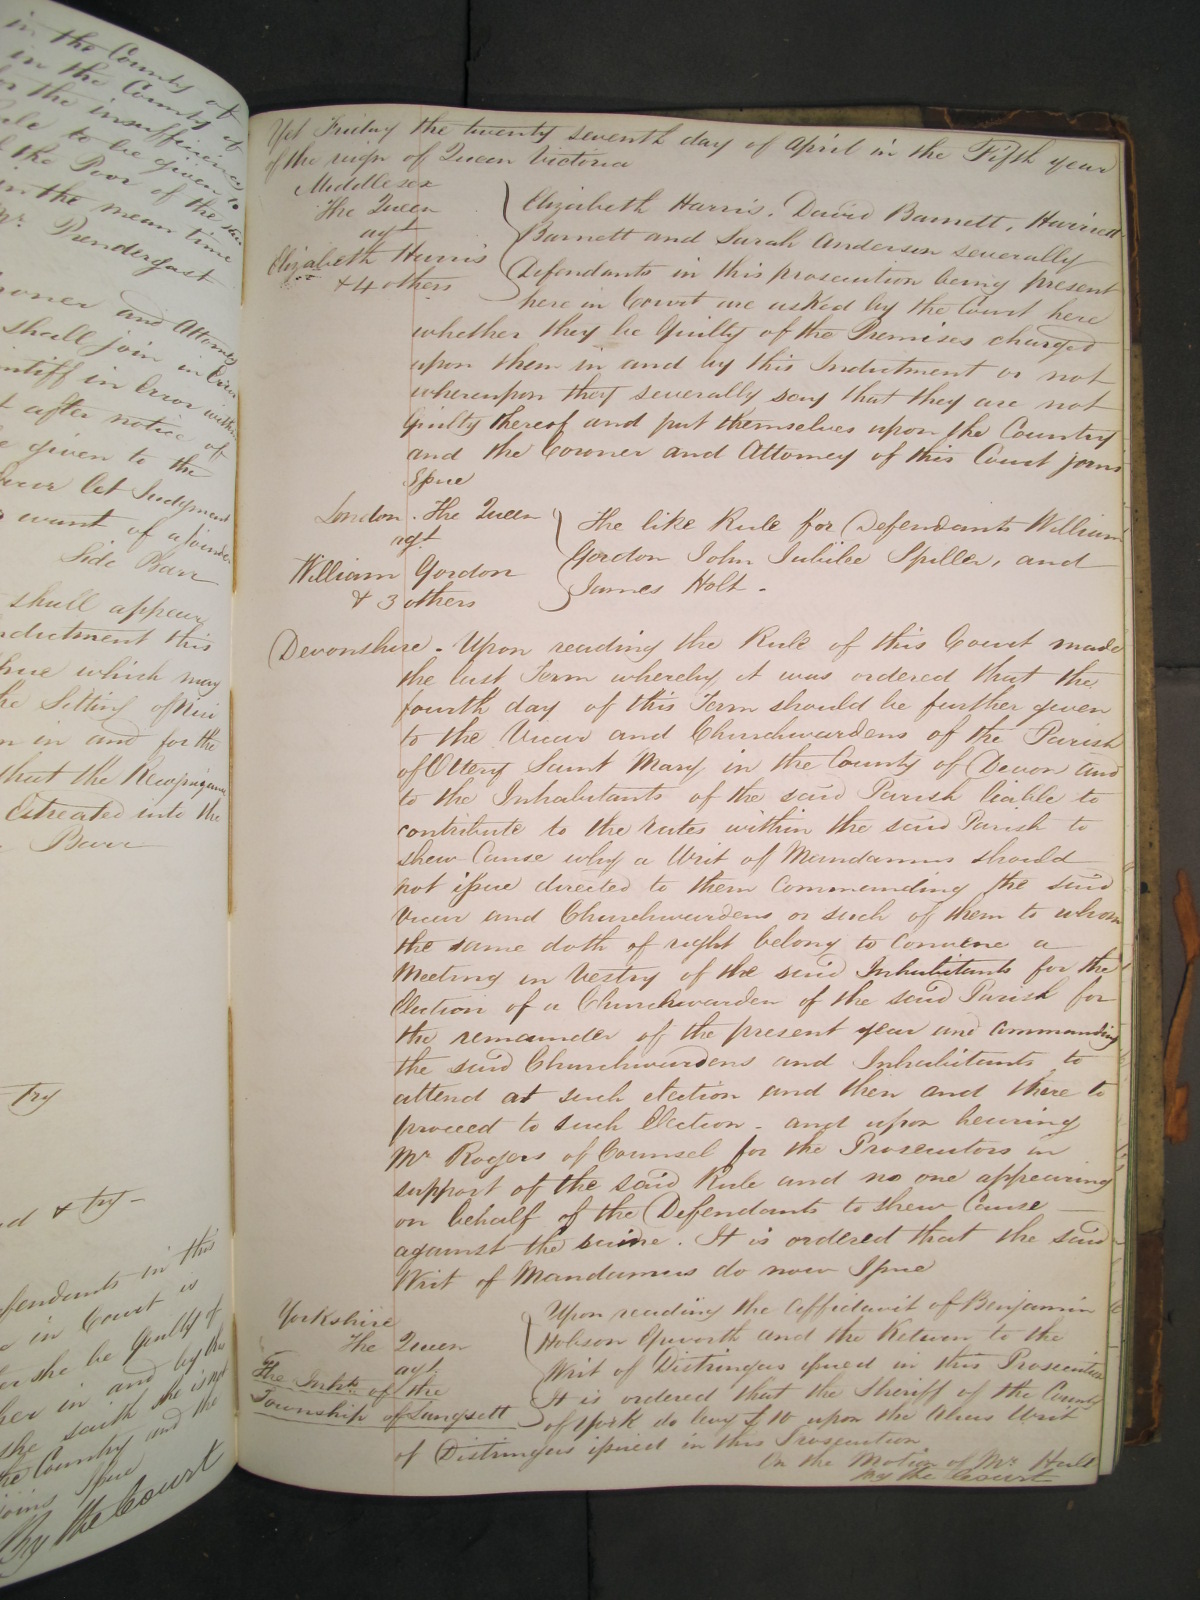 in the County of
in the County of
for the insufficiency
to be given to
the Poor of the
in the mean time
Mr. Prendergast
Coroner and Attorney
shall join in Error
in Error within
after notice of
given to the
let Judgment
want of a Joinder
Side Barr
shall appear
Indictment this
which may
the Sitting of Nisi
in and for the
that the Recognizance
Estreated into the
Barr
try
& try -
Defendants in this
in Court is
she be Guilty of
her in and by the
she saith she is not
the Country and the
joins Issue
By the Court
Yet Friday the twenty seventh day of April in the Fifth year
of the reign of Queen Victoria
Middlesex
The Queen
agt
Elizabeth Harris
& 4 others
Elizabeth Harris, David Barnett, Harriett
Barnett and Sarah Anderson severally
Defendants in this prosecution being present
here in Court are asked by the Court here
whether they be Guilty of the Premises charged
upon them in and by this Indictment or not
whereupon they severally say that they are not
Guilty thereof and put themselves upon the Country
and the Coroner and Attorney of this Court joins
Issue
London. The Queen
agt
William Gordon
& 3 others
The like Rule for Defendants William
Gordon John Jubilee Spiller, and
James Holt -
Devonshire - Upon reading the Rule of this Court made
the last Term whereby it was ordered that the
fourth day of this Term should be further given
to the Vicar and Churchwardens of the Parish
of Ottery Saint Mary in the County of Devon and
to the Inhabitants of the said Parish liable to
contribute to the rates within the said Parish to
shew Cause why a Writ of Mandamus should
not issue directed to them Commanding the said
Vicar and Churchwardens or such of them to whom
the same doth of right belong to Convene a
Meeting in Vestry of the said Inhabitants for the
Election of a Churchwarden of the said Parish for
the remainder of the present year and Commanding
the said Churchwardens and Inhabitants to
attend at such election and then and there to
proceed to such Election - and upon hearing
Mr Rogers of Counsel for the Prosecutors in
support of the said Rule and no one appearing
on behalf of the Defendants to shew Cause
against the same. It is ordered that the said
Writ of Mandamus do now Issue
Yorkshire
The Queen
agt
The Inhts. of the
Township of Langsett
Upon reading the affidavit of Benjamin
Hobson Epworth and the Return to the
Writ of Distringas issued in this Prosecution
It is ordered that the Sheriff of the County
of York do levy £10 upon the Alias Writ
of Distringas issued in this Prosecution
On the Motion of Mr. Hall
By the Court